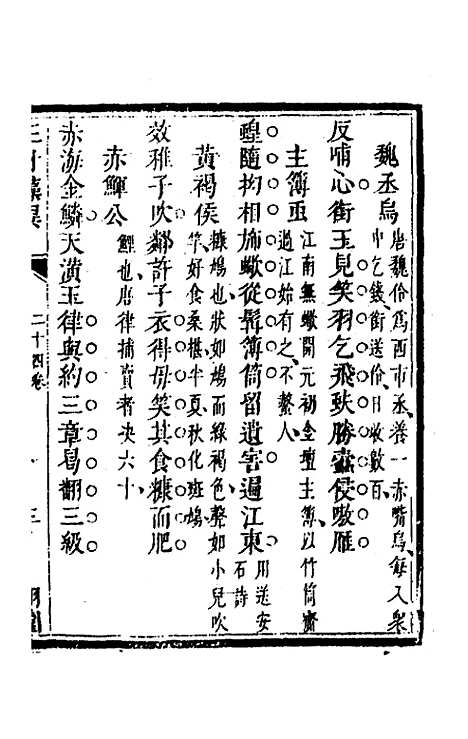 魏丞烏 唐魏伶爲西市丞養一赤嘴烏每入衆
中乞錢銜送伶日收數百
反哺心銜玉見笑羽乞飛㰱勝蠧侵嗷雁
主簿蟲 江南無蠍開元初金壇主簿以竹筒齎
過江始有之不螫人
蝗隨拘相施蠍從髯簿筒留遺害過江東 用道安
石詩
黃褐侯 糠鳩也狀如鳩而綠褐色聲如小兒吹
竽好食桑椹半夏秋化斑鳩
效稚子吹鄰許子衣得毋笑其食糠而肥
赤鯶公 鯉也唐律捕賣者决六十
赤海金鱗天潢玉律與約三章曷翻三級
二十四卷
三